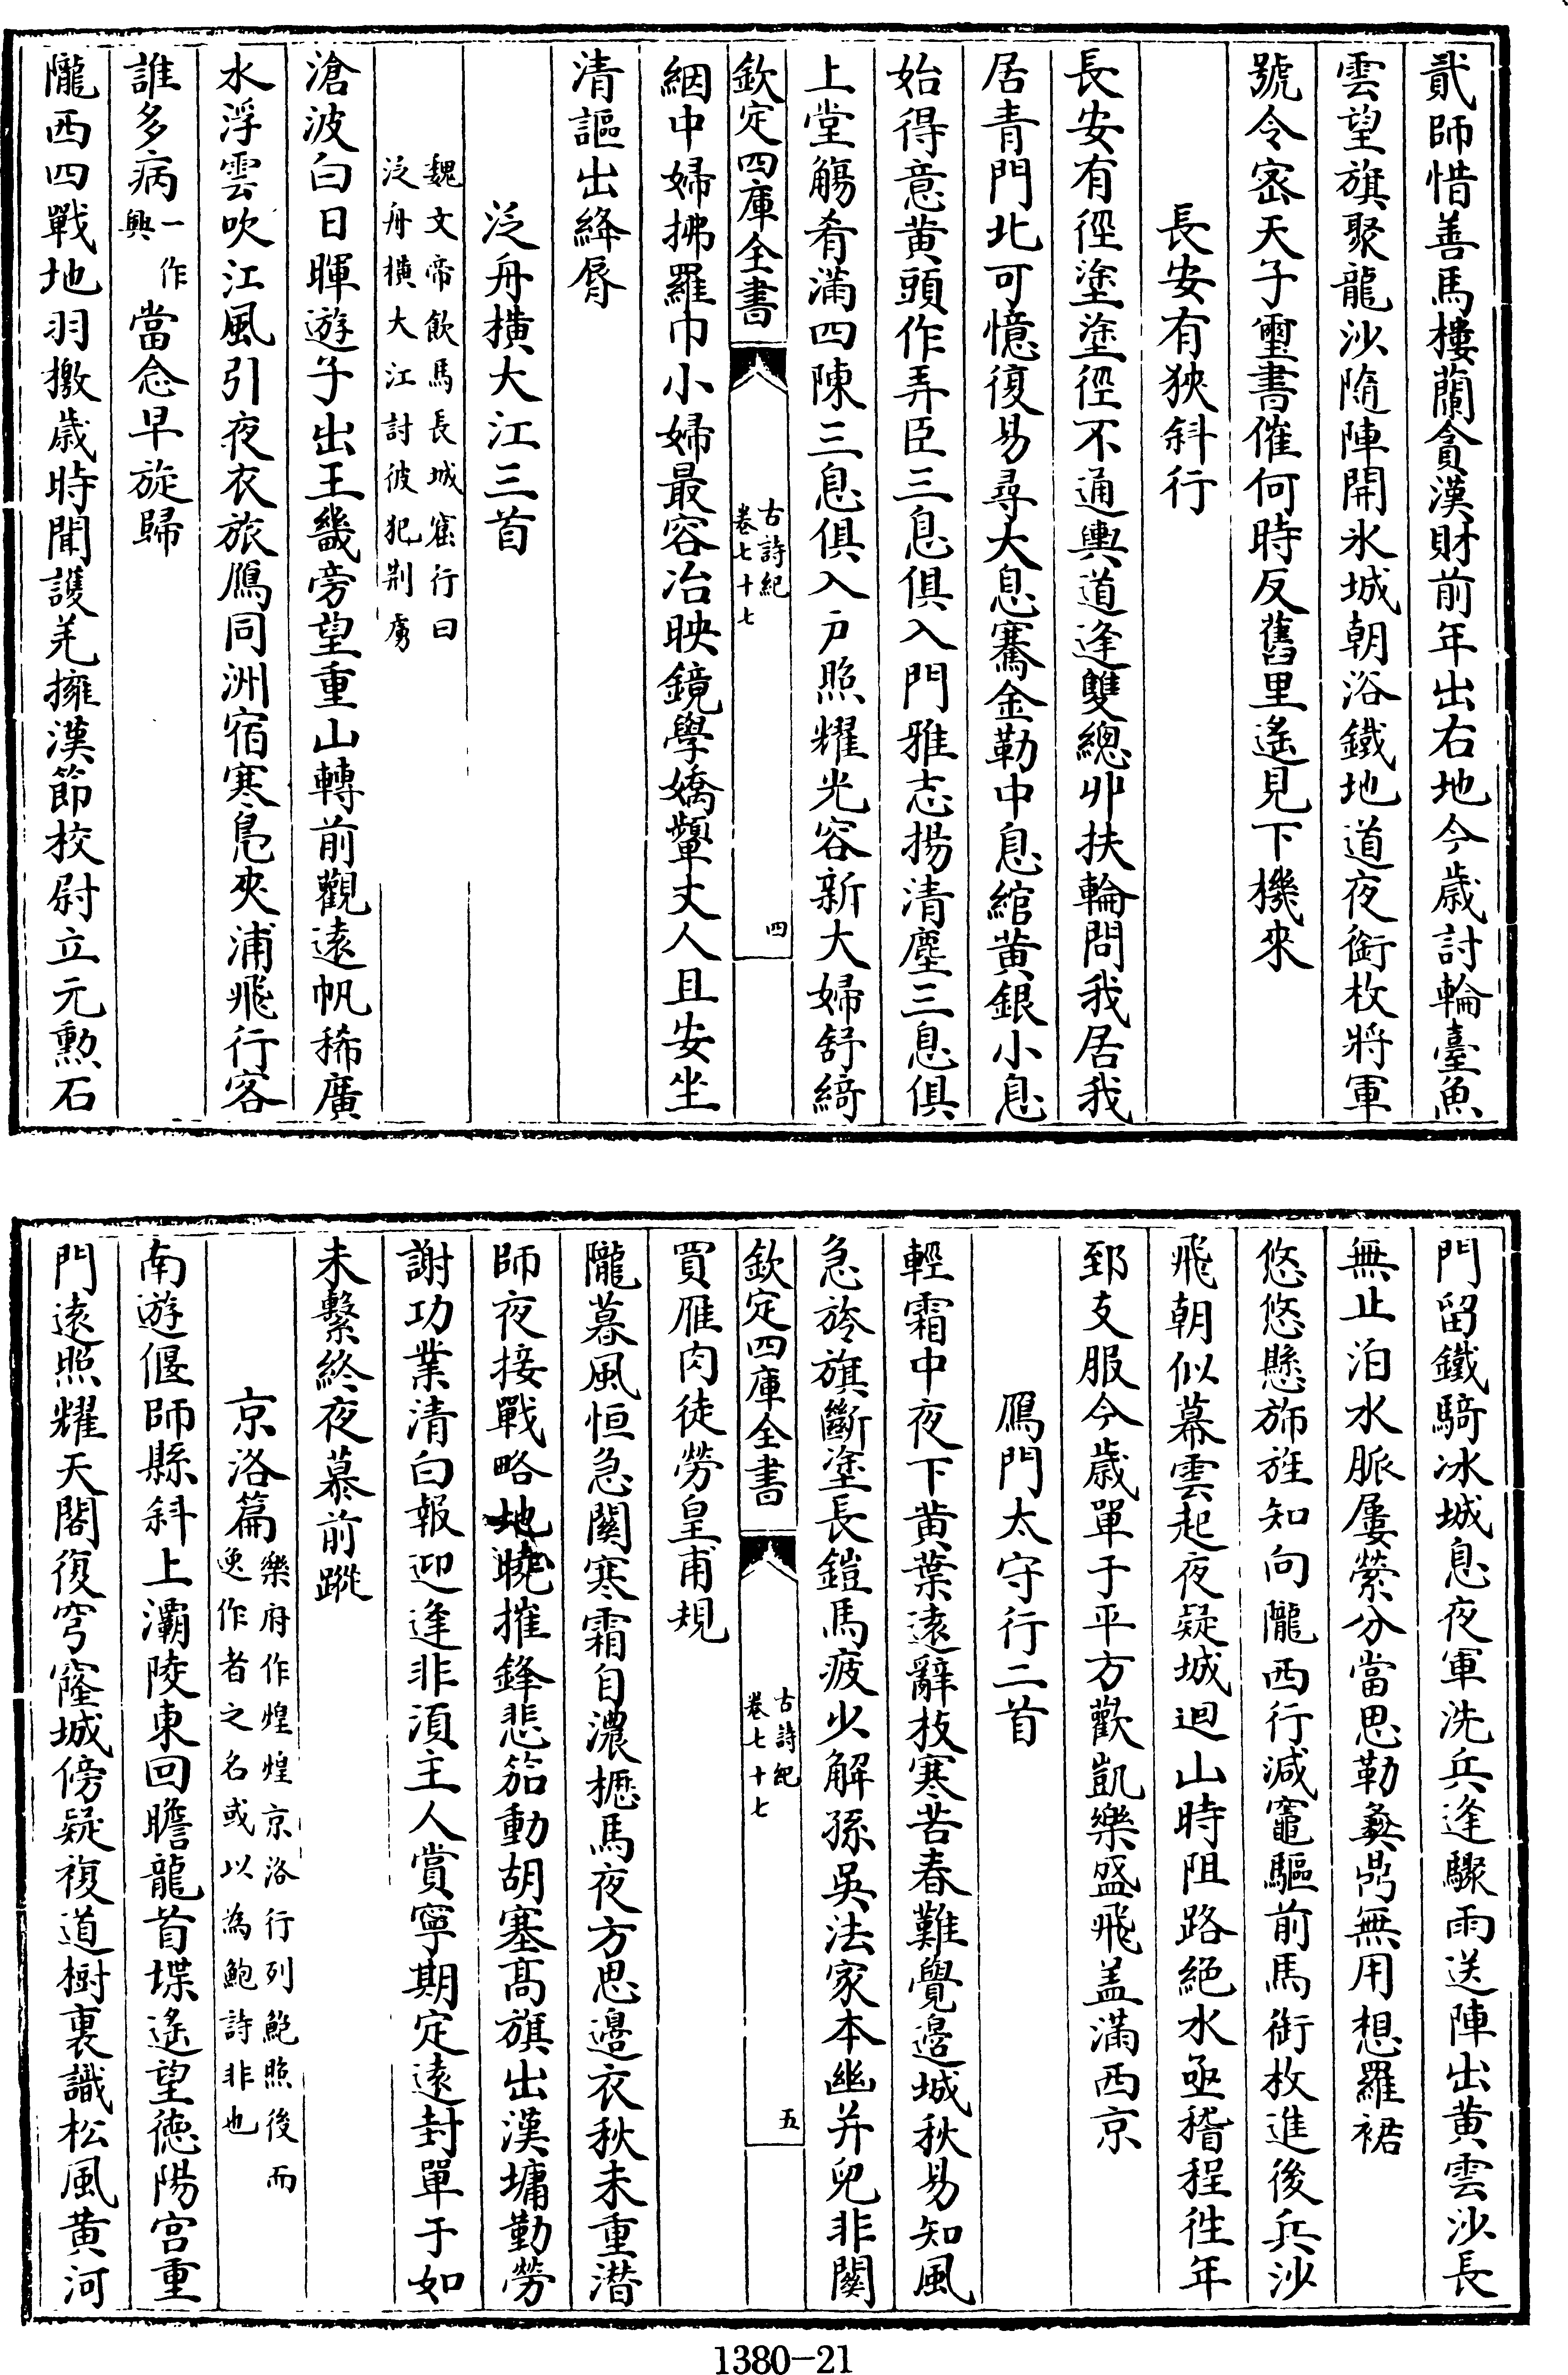 貳師惜善馬樓蘭貪漢財前年出右地今歲討輪臺魚
雲望旗聚龍沙隨陣開氷城朝浴鐵地道夜銜枚將軍
號令宻天子璽書催何時反舊里遙見下機來
長安有狹斜行
長安有徑塗塗徑不通輿道逢雙總丱扶輪問我居我
居青門北可憶復易尋大息騫金勒中息綰黄銀小息
始得意黄頭作弄臣三息俱入門雅志揚清塵三息俱
上堂觴肴滿四陳三息俱入户照耀光容新大婦舒綺
欽定四庫全書
古詩紀
卷七十七
四
絪中婦拂羅巾小婦最容冶映鏡學嬌顰丈人且安坐
清謳出絳脣
泛舟横大江三首
魏文帝飲馬長城窟行曰
泛舟横大江討彼犯荆虜
滄波白日暉遊子出王畿旁望重山轉前觀遠帆稀廣
水浮雲吹江風引夜衣旅鴈同洲宿寒鳬夾浦飛行客
誰多病一作興當念早旋歸
隴西四戰地羽檄歳時聞護羌擁漢節校尉立元勲石
門留鐵騎冰城息夜軍洗兵逢驟雨送陣出黄雲沙長
無止泊水脈屢縈分當思勒彝鼎無用想羅裙
悠悠懸旆旌知向隴西行減竈驅前馬銜枚進後兵沙
飛朝似幕雲起夜疑城迴山時阻路絶水亟稽程徃年
郅支服今歳單于平方歡凱樂盛飛盖滿西京
鴈門太守行二首
輕霜中夜下黄葉遠辭枝寒苦春難覺邉城秋易知風
急旍旗斷塗長鎧馬疲少解孫吳法家本幽并兒非關
欽定四庫全書
古詩紀
卷七十七
五
買雁肉徒勞皇甫規
隴暮風恒急關寒霜自濃櫪馬夜方思邉衣秋未重潛
師夜接戰略地曉摧鋒悲笳動胡塞髙旗出漢墉勤勞
謝功業清白報迎逢非須主人賞寧期定遠封單于如
未繫終夜慕前蹤
京洛篇樂府作煌煌京洛行列鮑照後而
逸作者之名或以為鮑詩非也
南遊偃師縣斜上灞陵東回瞻龍首堞遙望德陽宫重
門遠照耀天閣復穹窿城傍疑複道樹裏識松風黄河
1380-21